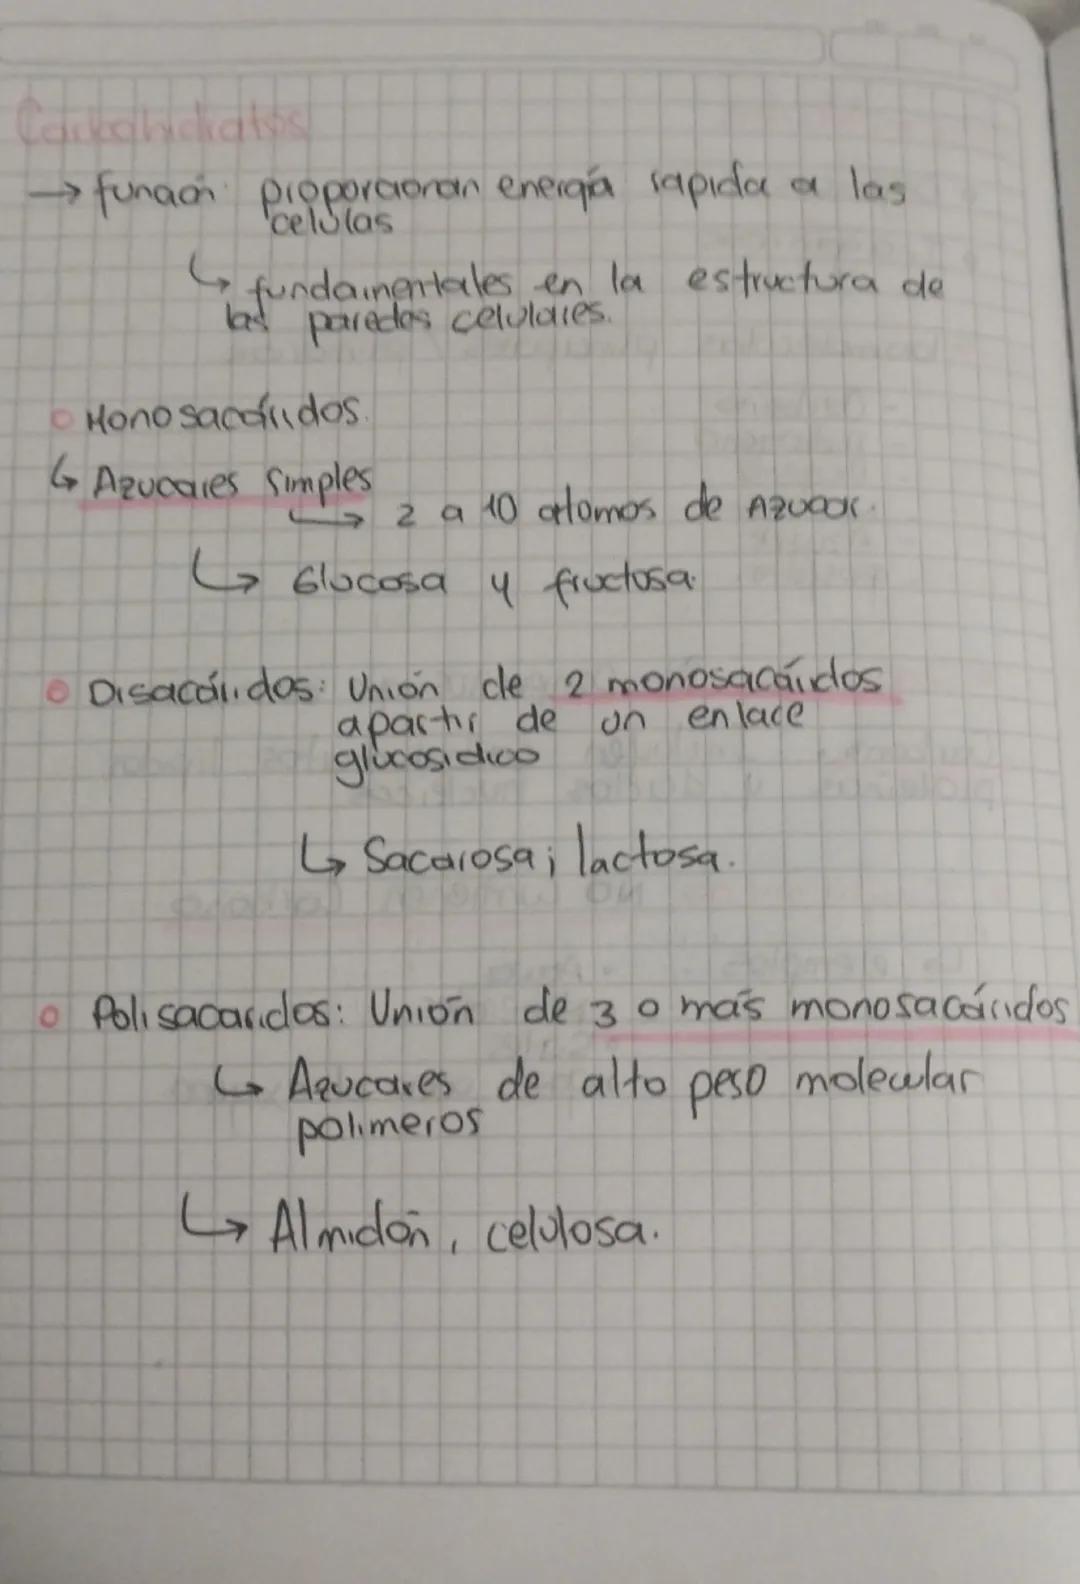 Carbohidratos
→ función: proporcionan energía rapida a las
celulas
↳ fundamentales en la estructura de
las paredes celulares.
Monosacáridos.
↳ Azucares simples
↳ 2 a 10 atomos de Azucar.
↳ Glucosa y fructosa.
Disacáridos: Unión de 2 monosacáridos
apartir de un enlace
glucosidico
↳ Sacarosa; lactosa.
Polisacaridos: Unión de 3 o más monosacáridos
↳ Azucares de alto peso molecular
polimeros
↳ Almidón, celulosa.